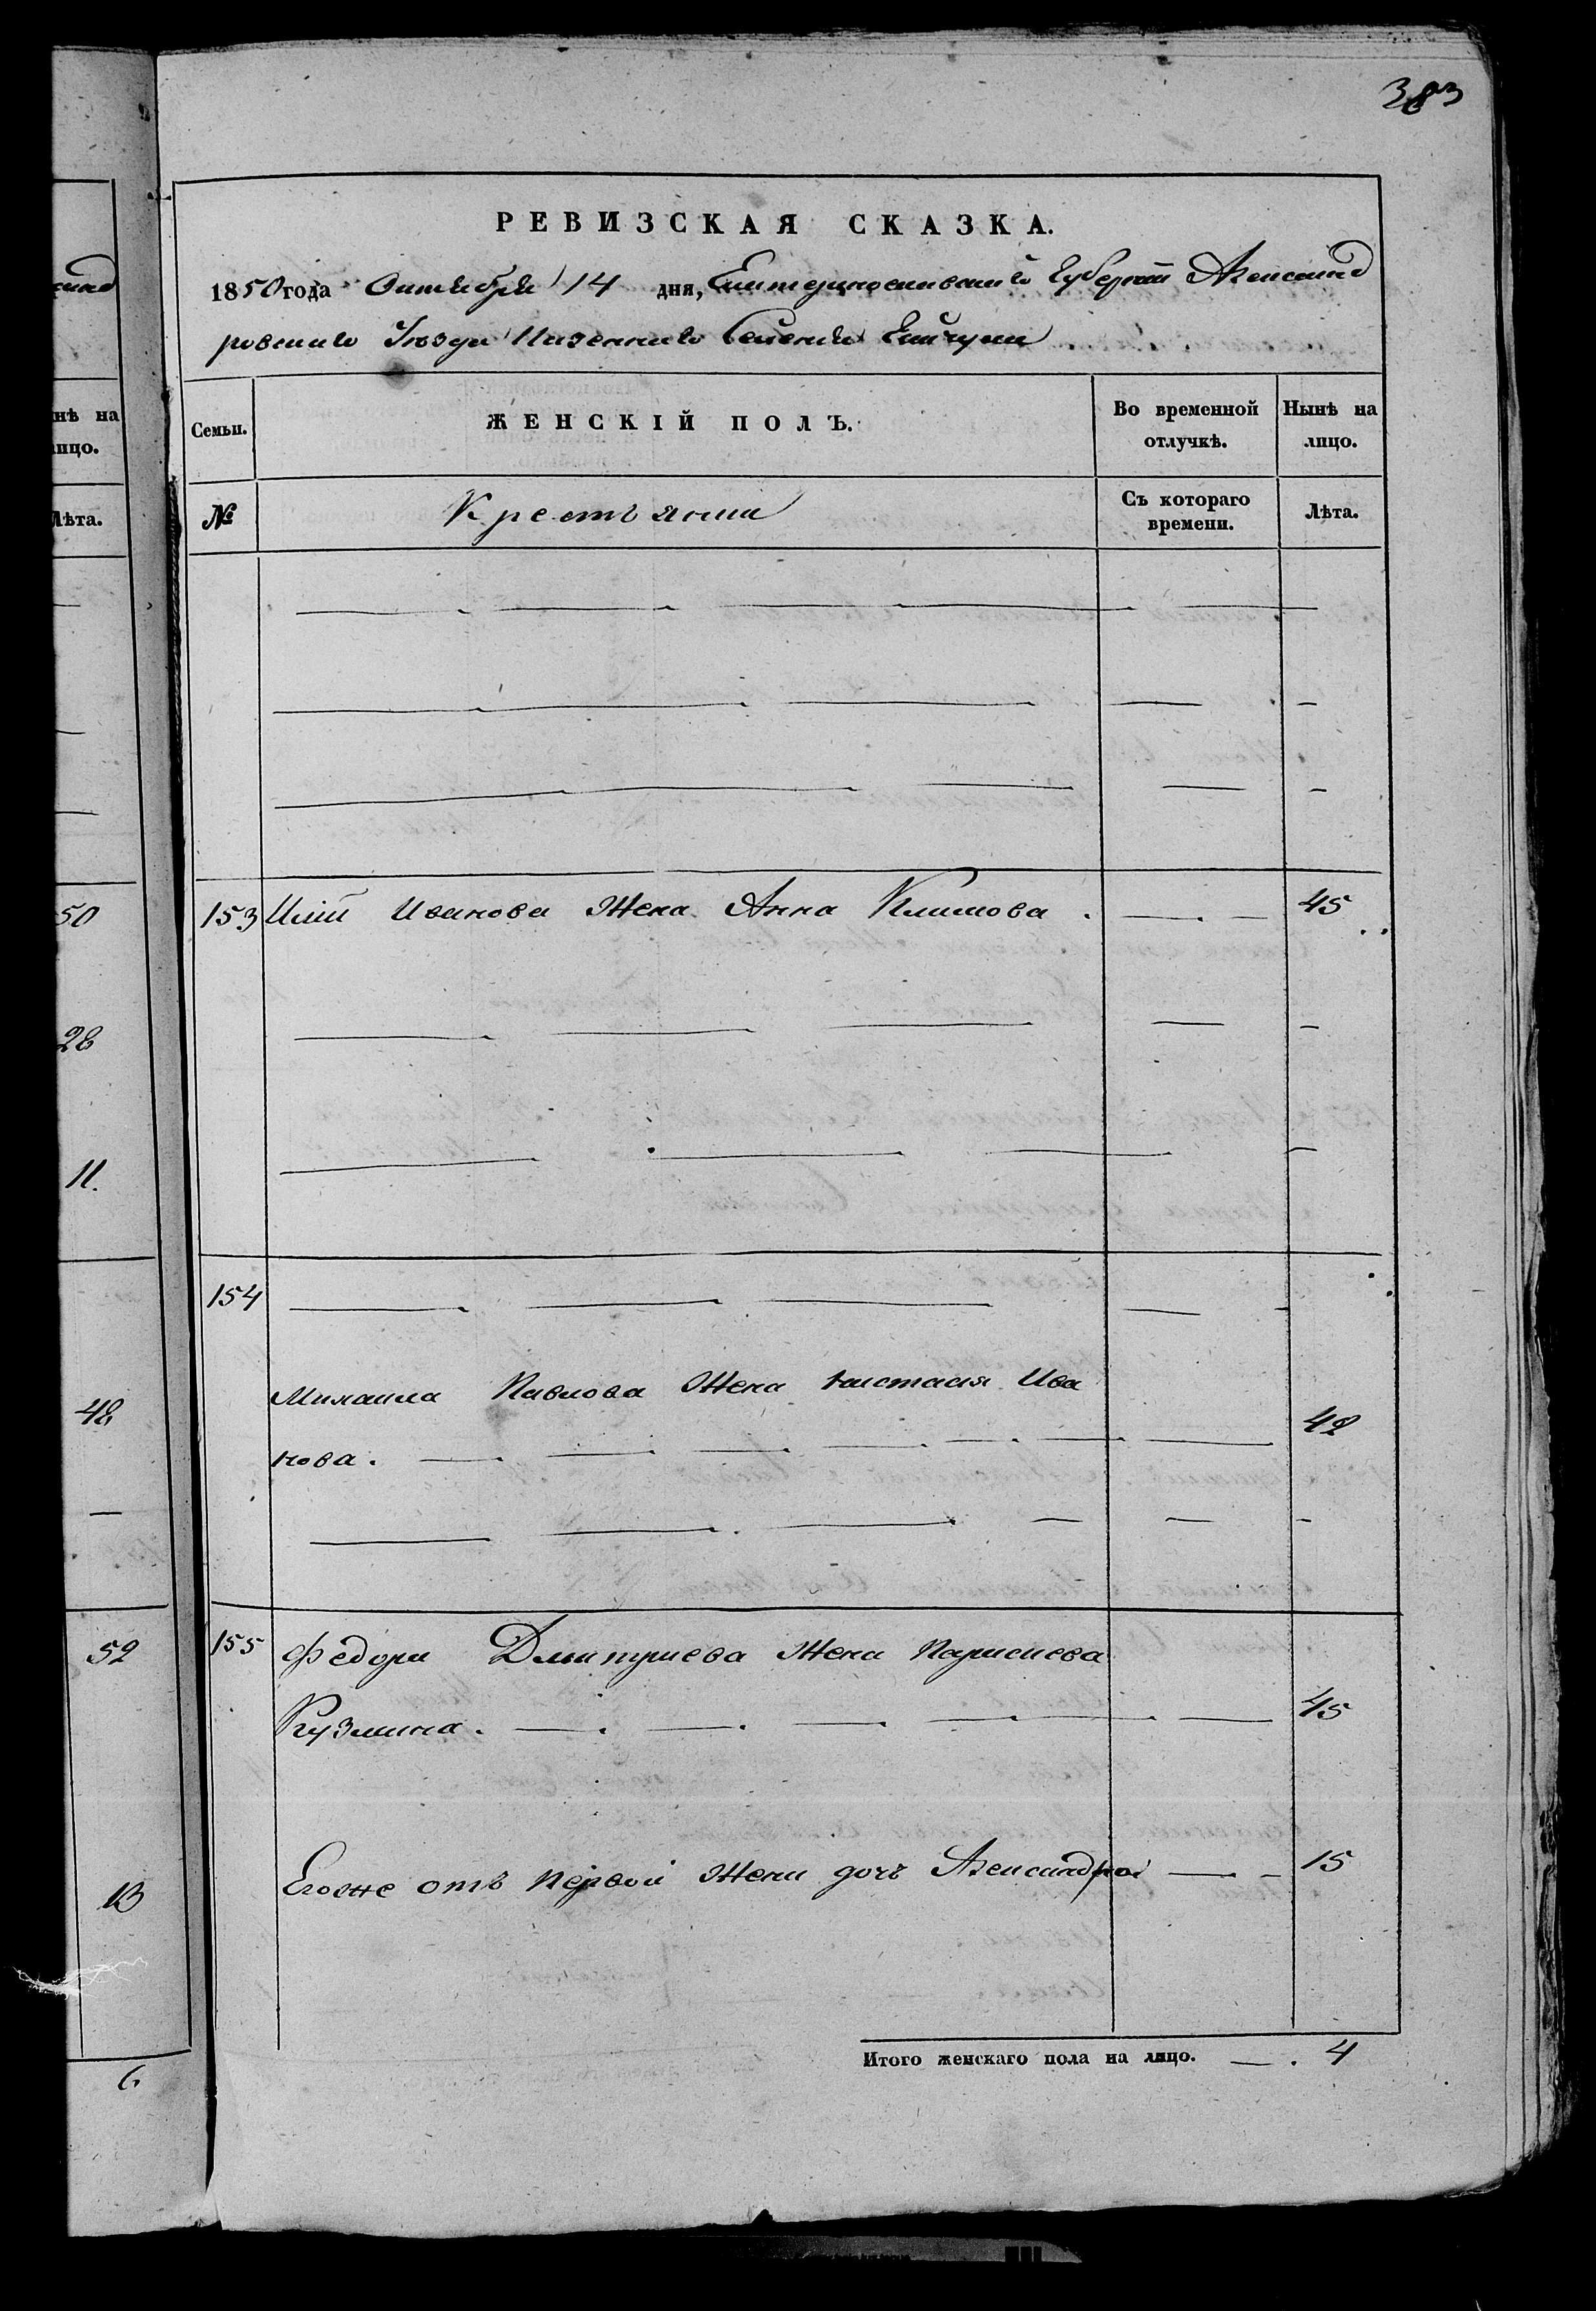 383
кинд
нѣ на
лицо.
Лѣта.
50
28
11.
48
52
13
6.
РЕВИЗСКАЯ СКАЗКА.
1850 года Октября 14 дня, Екатеринославской Губерніи Александ
ровскаго Уезда Казеннаго Селенія
Семьи.
ЖЕНСКІЙ ПОЛЪ.
Во временной отлучкѣ.
Нынѣ на лицо.
№
Крестьяни
Съ котораго времени.
Лѣта.
153 Иліи Иванова Жена Анна Климова . 45
154
Михаила Павлова Жена Настасия Ива
нова. 42
155 Федора Дмитриева Жена
Кузмина. 45
Егоже отъ первой Жены дочь Александра 15
Итого женскаго пола на лицо. 4